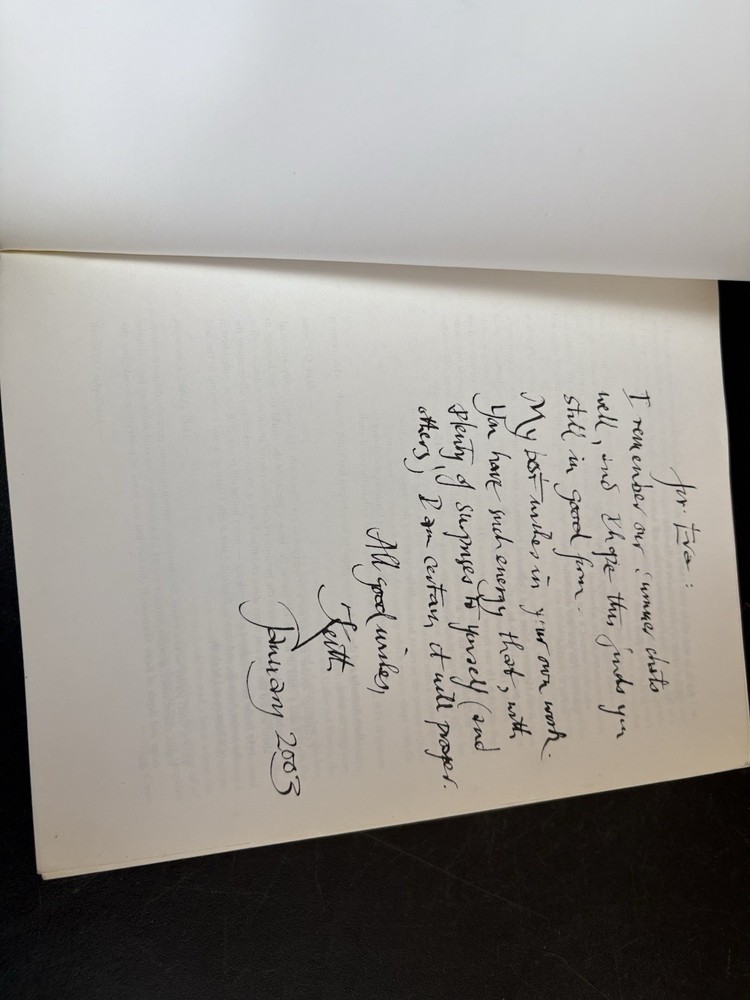 for Eva:
I remember our summer chats
well, and I hope this finds you
still in good form.
My best wishes in your own work.
You have such energy that, with
plenty of surprises to yourself (and
others), I am certain it will prosper.
All good wishes,
Keith
January 2003